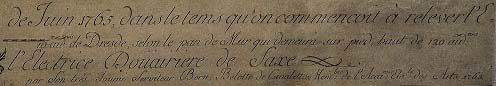 de Juin 1765, dans le tems qu'on commencoit à relever l'E
de Dresde, selon le pan de Mur qui demeura sur pied, haut de 120 aun.
l'Electrice Douairiere de Saxe
par Son très Serviteur Bern. Belotto de Canaletto, de l'Acad. des Arts 1765